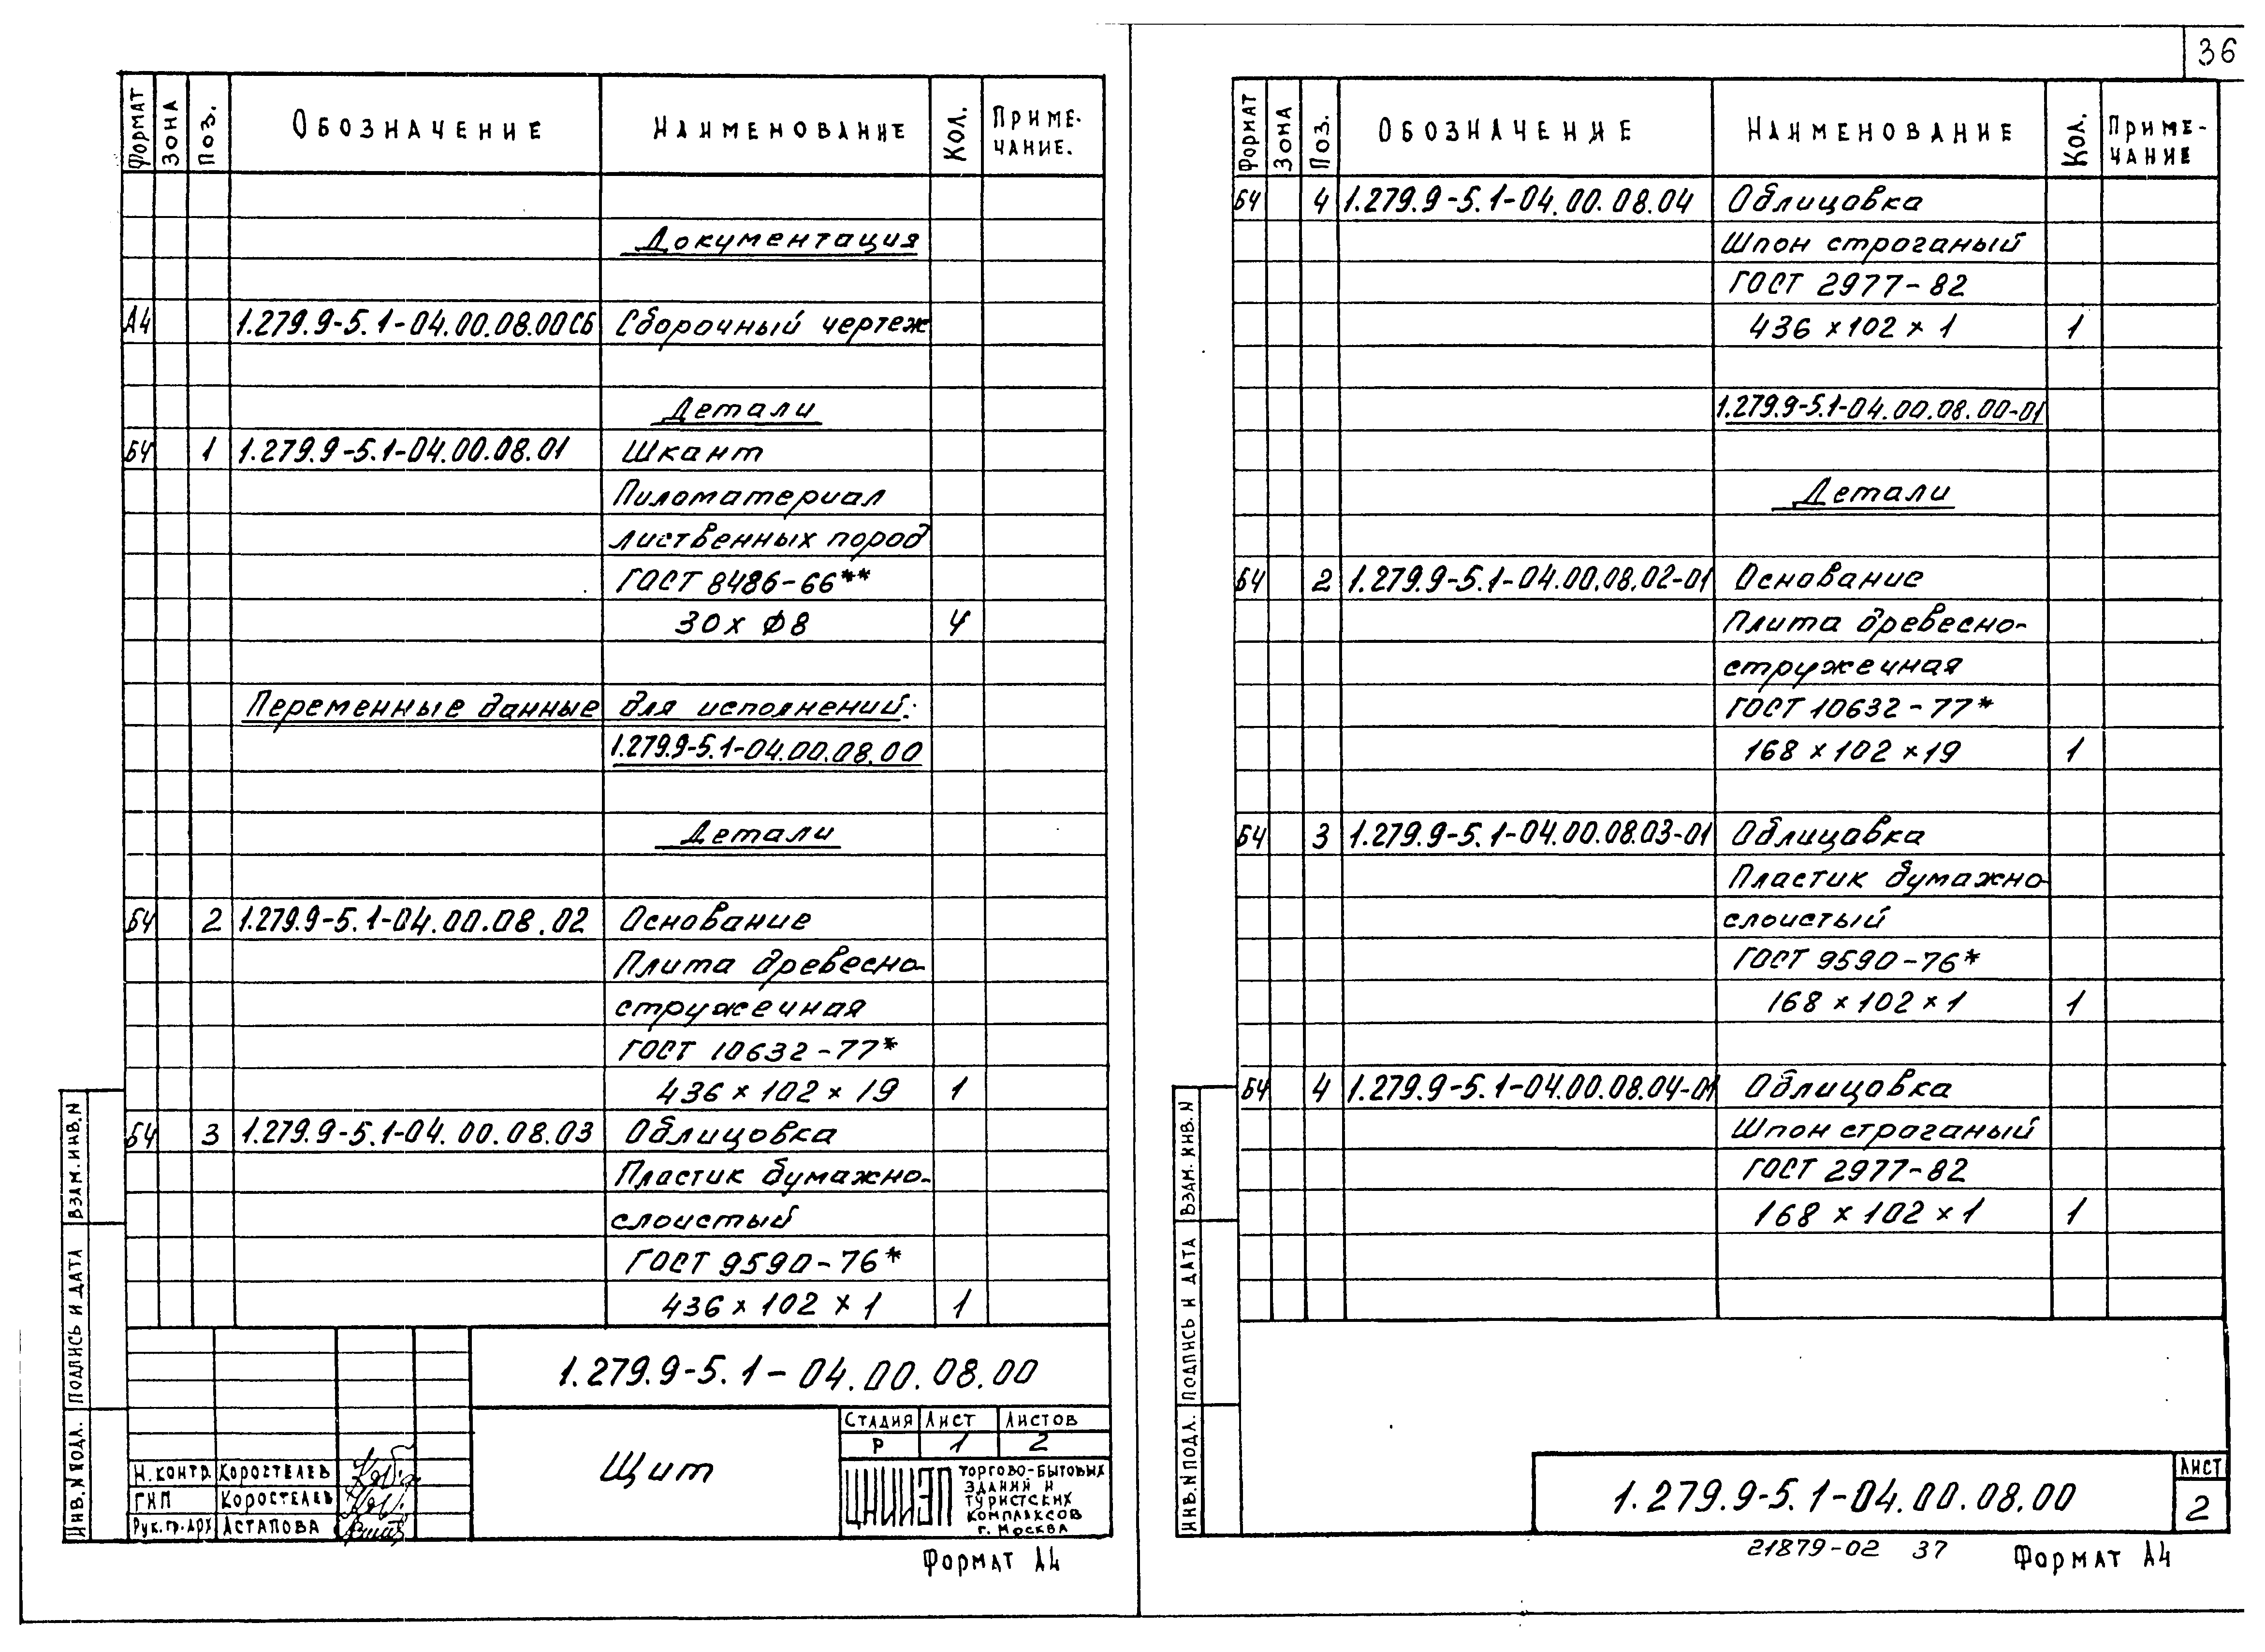 36
Формат Зона Поз. Обозначение Наименование Кол. Приме-
чание.
Документация
А4 1.279.9-5.1-04.00.08.00СБ Сборочный чертеж
Детали
БЧ 1 1.279.9-5.1-04.00.08.01 Шкант
Пиломатериал
лиственных пород
ГОСТ 8486-66**
30 х Ф8 4
Переменные данные для исполнений:
1.279.9-5.1-04.00.08.00
Детали
БЧ 2 1.279.9-5.1-04.00.08.02 Основание
Плита древесно-
стружечная
ГОСТ 10632-77*
436 х 102 х 19 1
БЧ 3 1.279.9-5.1-04.00.08.03 Облицовка
Пластик бумажно-
слоистый
ГОСТ 9590-76*
436 х 102 х 1 1
1.279.9-5.1-04.00.08.00
Щит
Стадия Лист Листов
Р 1 2
ЦНИИЭП торгово-бытовых
зданий и
туристских
комплексов
г. Москва
Н.контр. Коростелев
ГИП Коростелев
Рук.гр.арх Астапова
Взам. инв. N
Подпись и дата
Инв. N подл.
Формат А4
Формат Зона Поз. Обозначение Наименование Кол. Приме-
чание
БЧ 4 1.279.9-5.1-04.00.08.04 Облицовка
Шпон строганый
ГОСТ 2977-82
436 х 102 х 1 1
1.279.9-5.1-04.00.08.00-01
Детали
БЧ 2 1.279.9-5.1-04.00.08.02-01 Основание
Плита древесно-
стружечная
ГОСТ 10632-77*
168 х 102 х 19 1
БЧ 3 1.279.9-5.1-04.00.08.03-01 Облицовка
Пластик бумажно
слоистый
ГОСТ 9590-76*
168 х 102 х 1 1
БЧ 4 1.279.9-5.1-04.00.08.04-01 Облицовка
Шпон строганый
ГОСТ 2977-82
168 х 102 х 1 1
Взам. инв. N
Подпись и дата
Инв. N подл.
1.279.9-5.1-04.00.08.00
Лист
2
21879-02 37
Формат А4